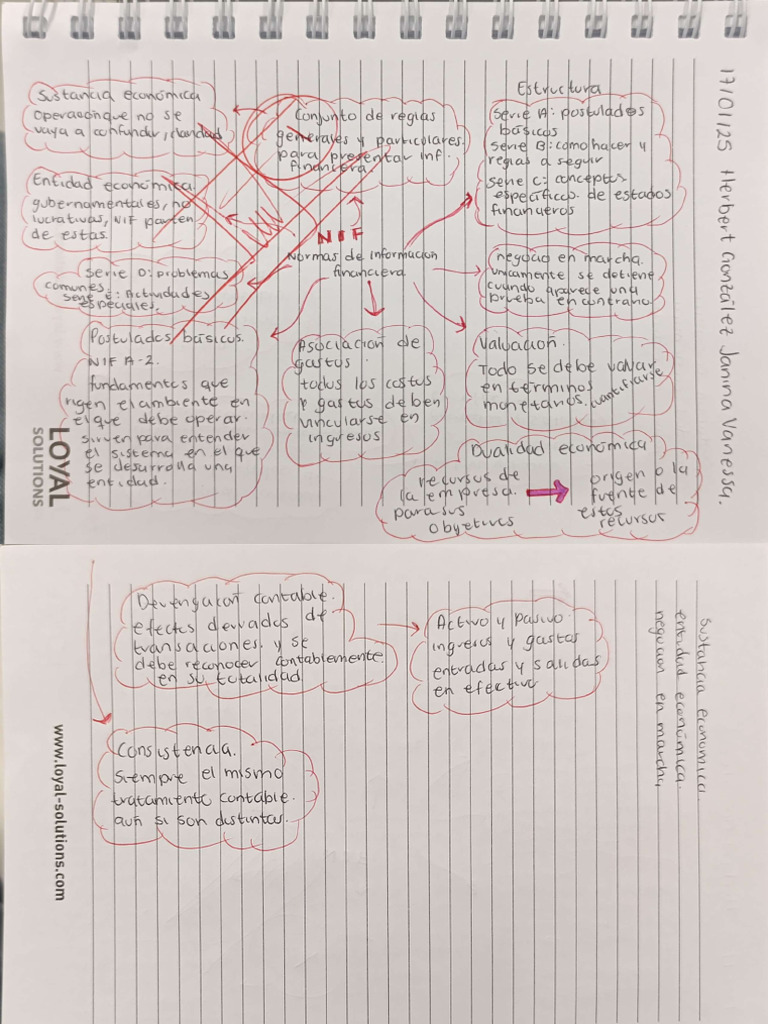 17/01/25 Herbert González Janina Vanessa.
Sustancia económica
operación que no se
vaya a confundir, claridad
Conjunto de reglas
generales y particulares.
para presentar inf.
financiera.
Estructura
Serie A: postulados
básicos
serie B: como hacer y
reglas a seguir
serie C: conceptos
específicos. de estados
financieros
Entidad económica.
gubernamentales, no
lucrativas, NIF parten
de estas.
NIF
Normas de informacion
financiera
negocio en marcha.
unicamente se detiene
cuando aparece una
prueba en contrario
Serie D: problemas
comunes.
serie E: Actividades
especiales.
Postulados básicos.
NIF A-2.
fundamentos que
rigen el ambiente en
el que debe operar.
sirven para entender
el sistema en el que
se desarrolla una
entidad.
Asociacion de
gastos.
todos los costos
y gastos deben
vincularse en
ingresos
Valuación.
Todo se debe
en términos
monetarios. cuantificarse
Dualidad económica
recursos de
la empresa.
para sus
objetivos
origen o la
fuente de
estos
recursos
LOYAL
SOLUTIONS
Devengacion contable.
efectos derivados de
transaciones. y se
debe reconocer contablemente.
en su totalidad
Activo y pasivo.
ingresos y gastos
entradas y salidas
en efectivo
Consistencia.
Siempre el mismo
tratamiento contable.
aun si son distintas.
Sustancia economica
entidad económica.
negocion en marcha
www.loyal-solutions.com